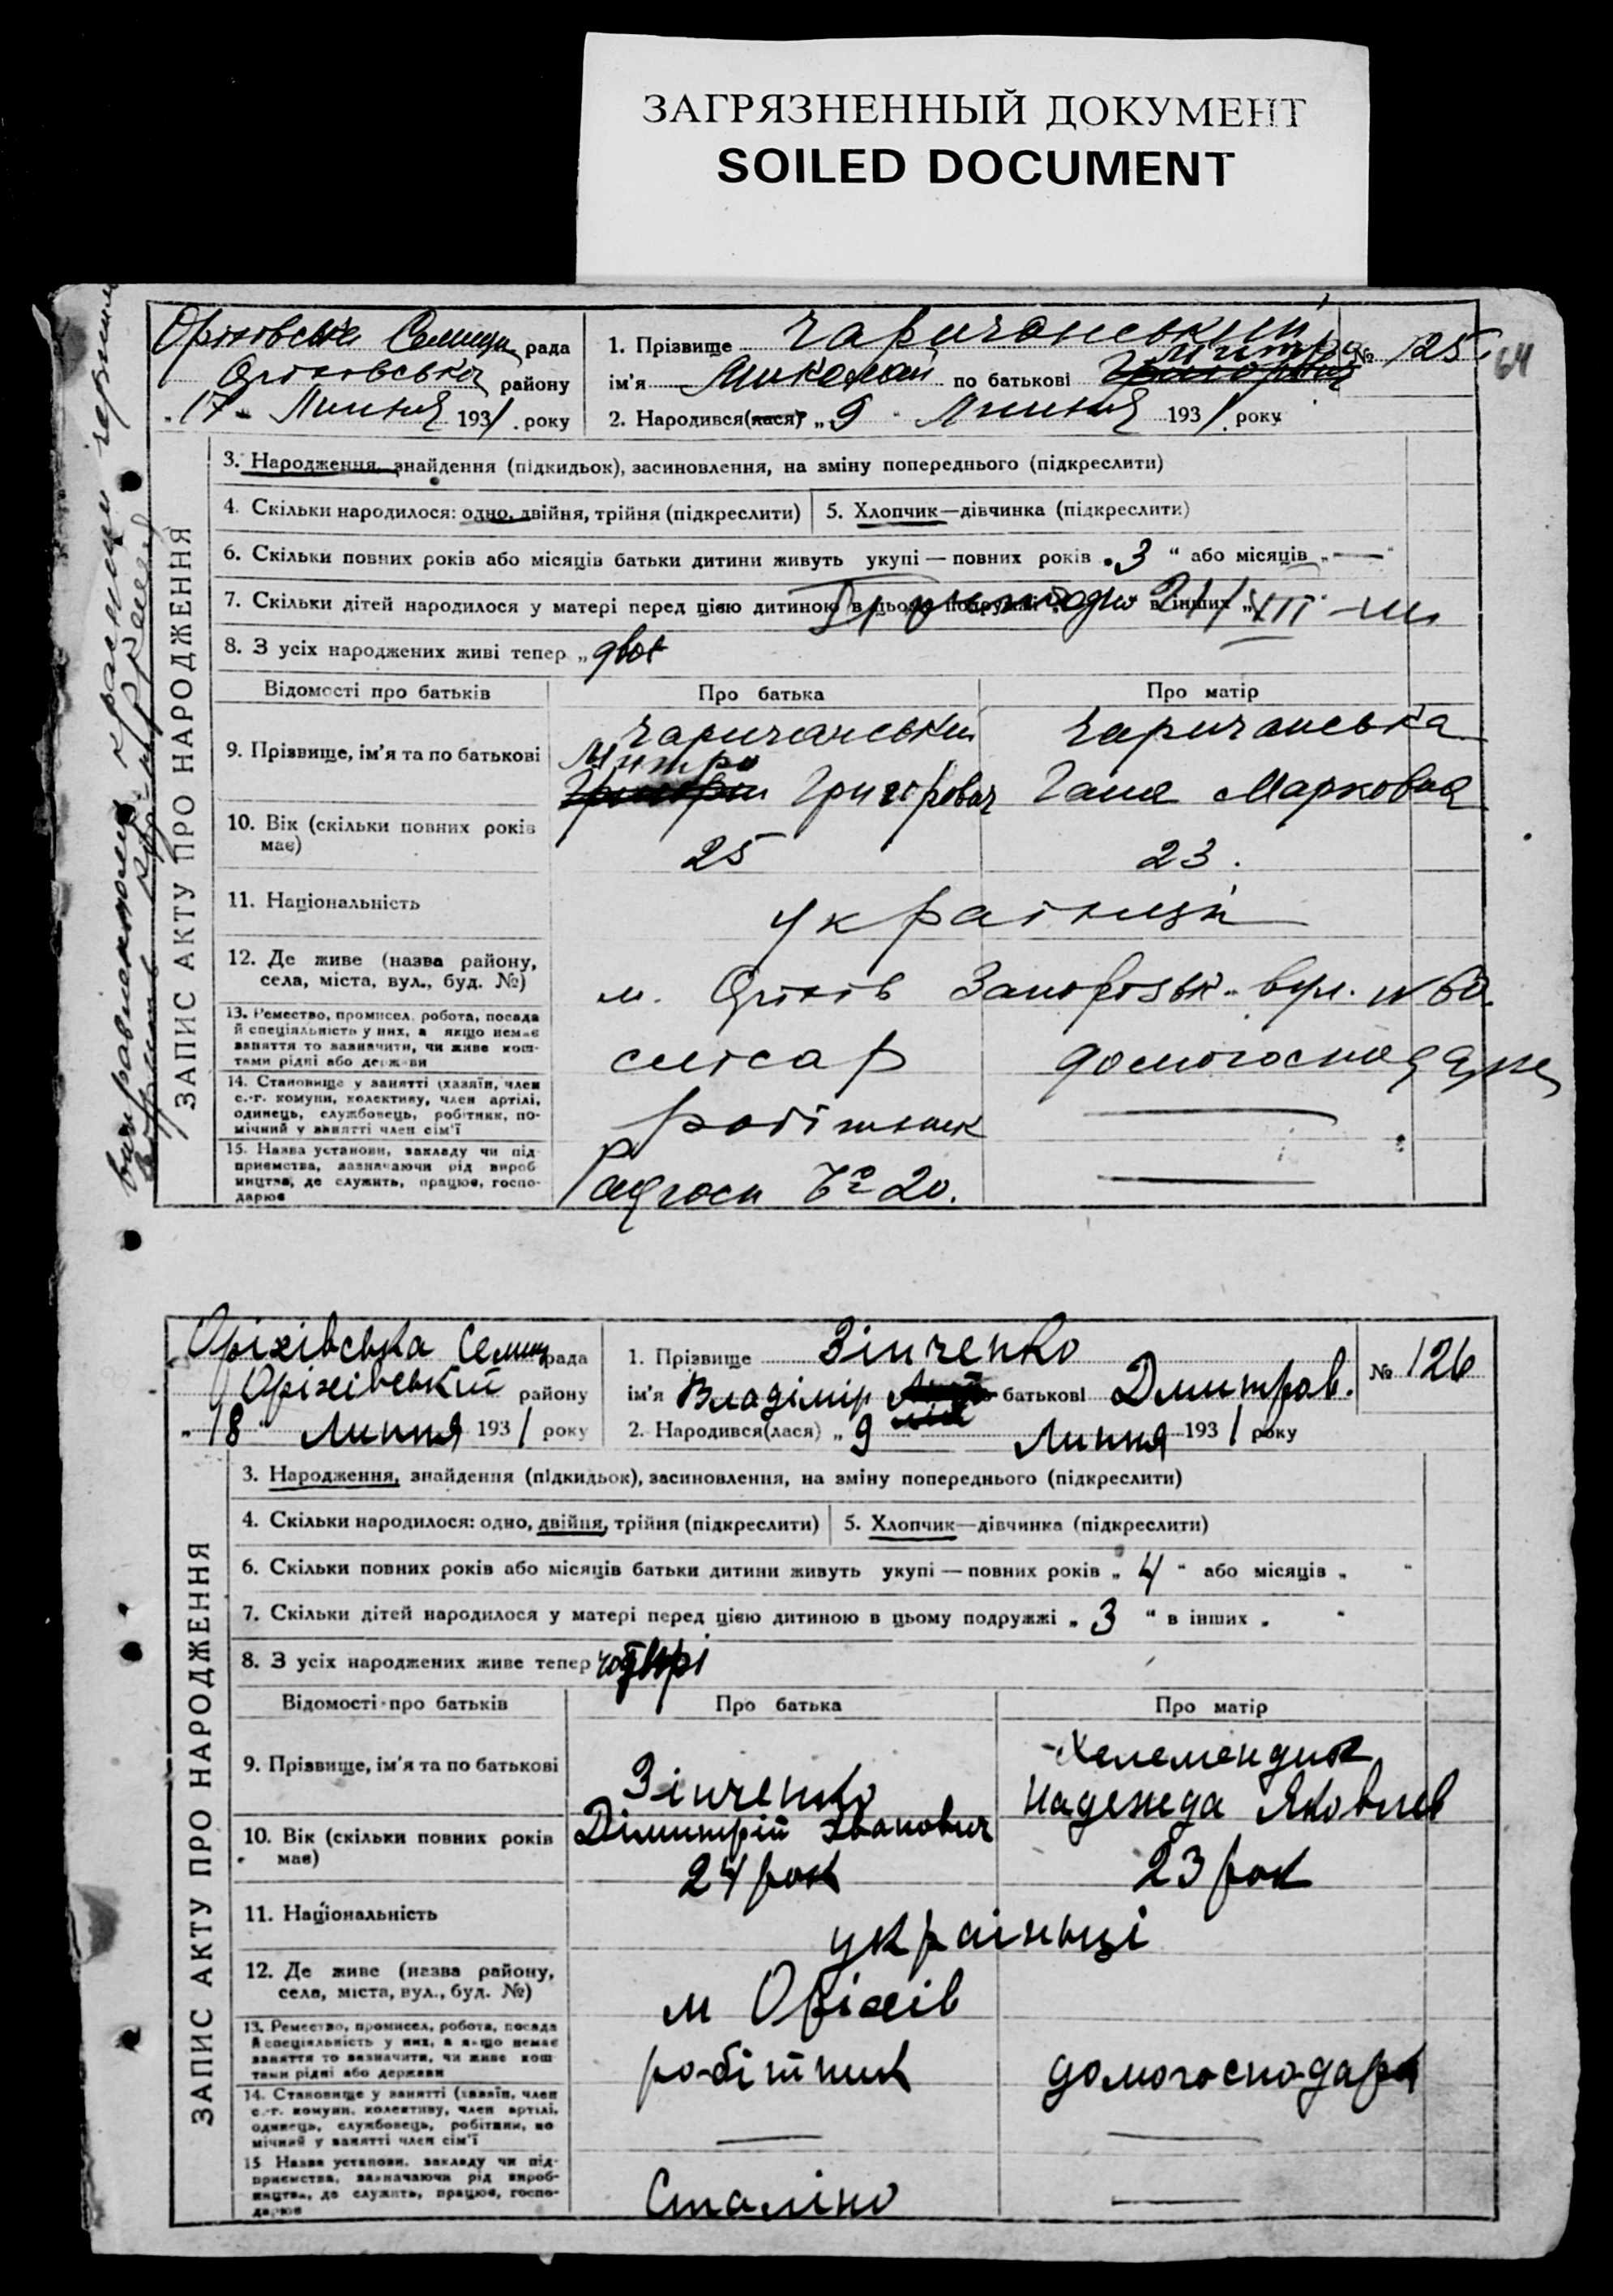 ЗАГРЯЗНЕННЫЙ ДОКУМЕНТ
SOILED DOCUMENT
64
Оріхівська Селищ рада
Оріхівська району
„17" Липня 1931 року
1. Прізвище Чаричанський
№ 125
ім'я Миколай по батькові Митро Григорович
2. Народився(лася) „9" Липня 1931 року
ЗАПИС АКТУ ПРО НАРОДЖЕННЯ
3. Народження, знайдення (підкидьок), засиновлення, на зміну попереднього (підкреслити)
4. Скільки народилося: одно, двійня, трійня (підкреслити)
5. Хлопчик—дівчинка (підкреслити)
6. Скільки повних років або місяців батьки дитини живуть укупі — повних років „3" або місяців „—"
7. Скільки дітей народилося у матері перед цією дитиною в цьому подружжі одно в інших
8. З усіх народжених живі тепер „двоє
Відомості про батьків Про батька Про матір
9. Прізвище, ім'я та по батькові
Чаричанський Чаричанська
Митро
Григорович Гапа Марковна
10. Вік (скільки повних років має)
25 23.
11. Національність
українці
12. Де живе (назва району, села, міста, вул., буд. №)
м. Оріхів Запорозьк. вул. №
13. Ремество, промисел, робота, посада
й спеціяльність у них, а якщо немає
заняття то зазначити, чи живе кош-
тами рідні або держави
слюсар
14. Становище у занятті (хазяїн, член
с.-г. комуни, колективу, член артілі,
одинець, службовець, робітник, по-
мічний у занятті член сім'ї
робітник
15. Назва установи, закладу чи під-
приємства, зазначаючи рід вироб-
ництва, де служить, працює, госпо-
дарює
Радгосп № 20.
Оріхівська Селищ рада
Оріхівський району
„18" Липня 1931 року
1. Прізвище Зінченко
№ 126
ім'я Владімір по батькові Дмитров.
2. Народився(лася) „9 Липня 1931 року
ЗАПИС АКТУ ПРО НАРОДЖЕННЯ
3. Народження, знайдення (підкидьок), засиновлення, на зміну попереднього (підкреслити)
4. Скільки народилося: одно, двійня, трійня (підкреслити)
5. Хлопчик—дівчинка (підкреслити)
6. Скільки повних років або місяців батьки дитини живуть укупі — повних років „4" або місяців „ "
7. Скільки дітей народилося у матері перед цією дитиною в цьому подружжі „3" в інших „ "
8. З усіх народжених живе тепер
Відомості про батьків Про батька Про матір
9. Прізвище, ім'я та по батькові
Хелемендик
Зінченко Надежда Яковлев
Дімитрій Іванович
10. Вік (скільки повних років має)
24 рок 23 рок
11. Національність
українці
12. Де живе (назва району, села, міста, вул., буд. №)
м Оріхів
13. Ремество, промисел, робота, посада
й спеціяльність у них, а якщо немає
заняття то зазначити, чи живе кош-
тами рідні або держави
робітник домогосподарк
14. Становище у занятті (хазяїн, член
с.-г. комуни, колективу, член артілі,
одинець, службовець, робітник, по-
мічний у занятті член сім'ї
15 Назва установи, закладу чи під-
приємства, зазначаючи рід вироб-
ництва, де служить, працює, госпо-
дарює
Сталіно